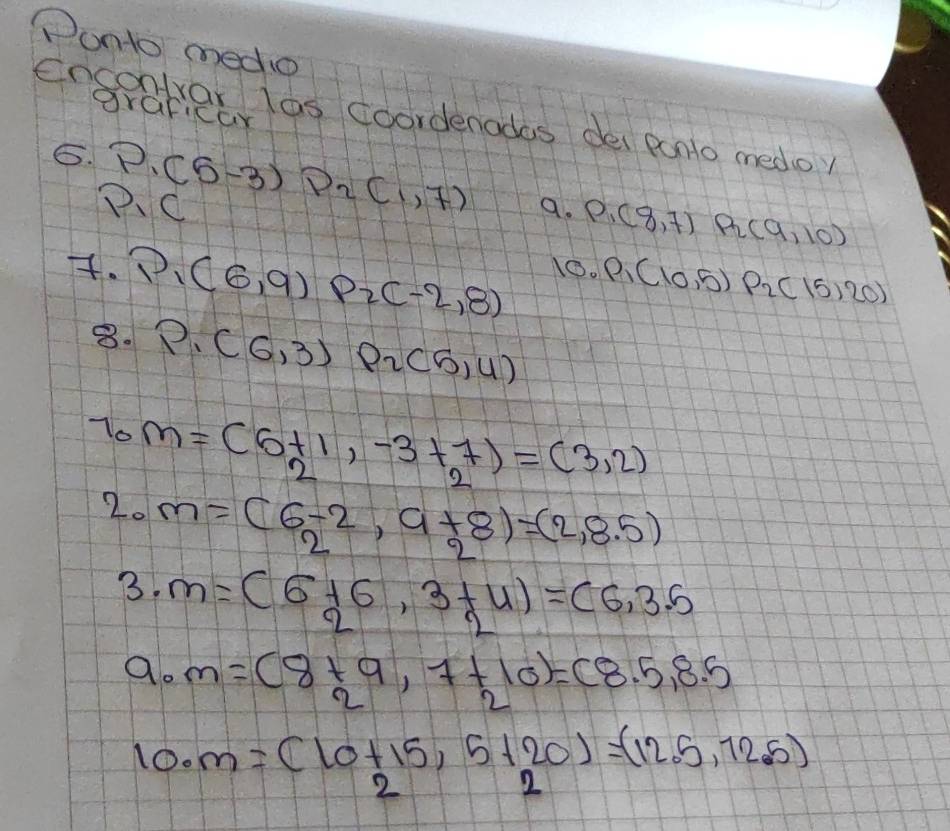 Punto medio
Encontrar las coordenadas del punto medio y
graficar
6. P1(5-3) P2(1,7)
P1(
7. P1(6,9) P2(-2,8)
8. P1(6,3) P2(6,4)
9. P1(8,7) P2(9,10)
10. P1(10,5) P2(15,20)
1. m=(5+1/2, -3+7/2)=(3,2)
2. m=(6-2/2, 9+8/2)=(2,8.5)
3. m=(6+6/2, 3+4/2)=(6,3.5
9. m=(8+9/2, 7+10/2)=(8.5,8.5
10. m=(10+15/2, 5+20/2)=(12.5,12.5)